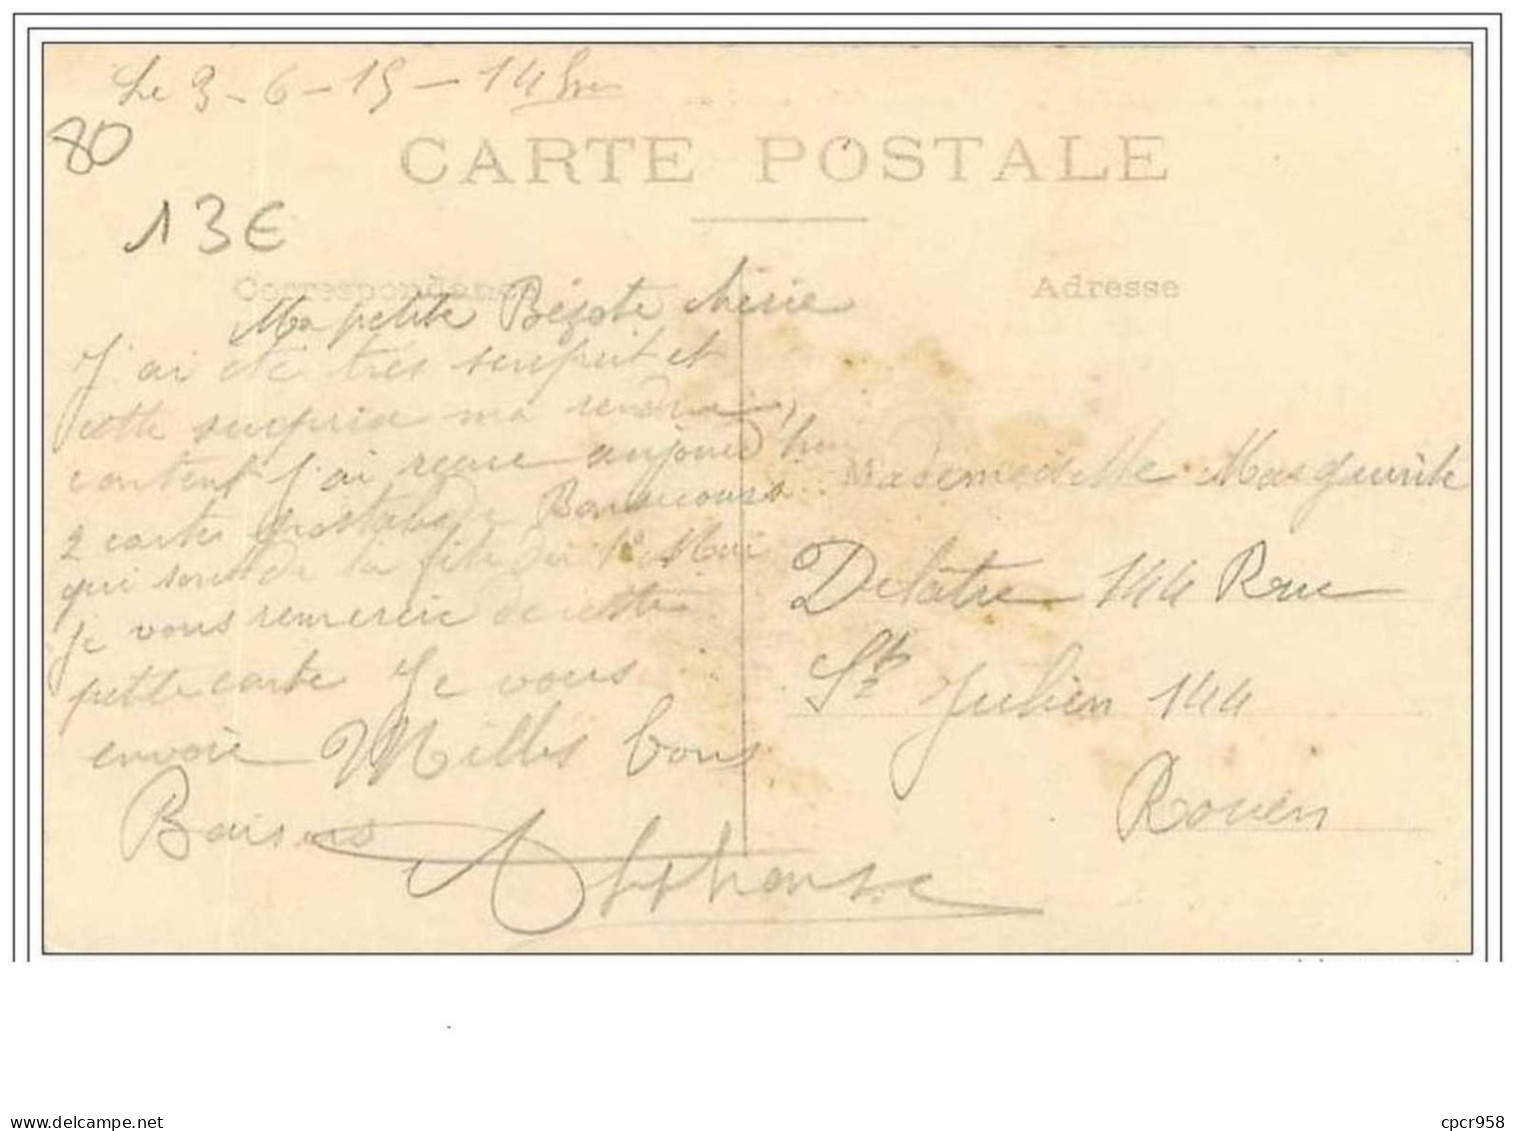 Le 3-6-15-14 hrs
80
CARTE POSTALE
13€
Correspondance
Adresse
Ma petite chérie
J'ai été très surprit et
cette surprise ma rendu
content J'ai recue aujourd'hui
2 cartes postales
qui sont de la fête du 1° Mai
Je vous remercie de cette
petite carte Je vous
envoie Milles bons
Baisers
Alphonse
Mademoiselle Marguerite
Delâtre 144 Rue
St Julien 144
Rouen
delcampe.net
cpcr958